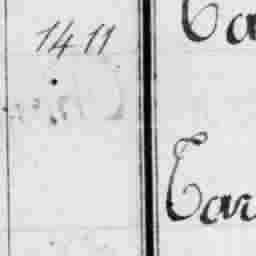 1411
Ca
Car